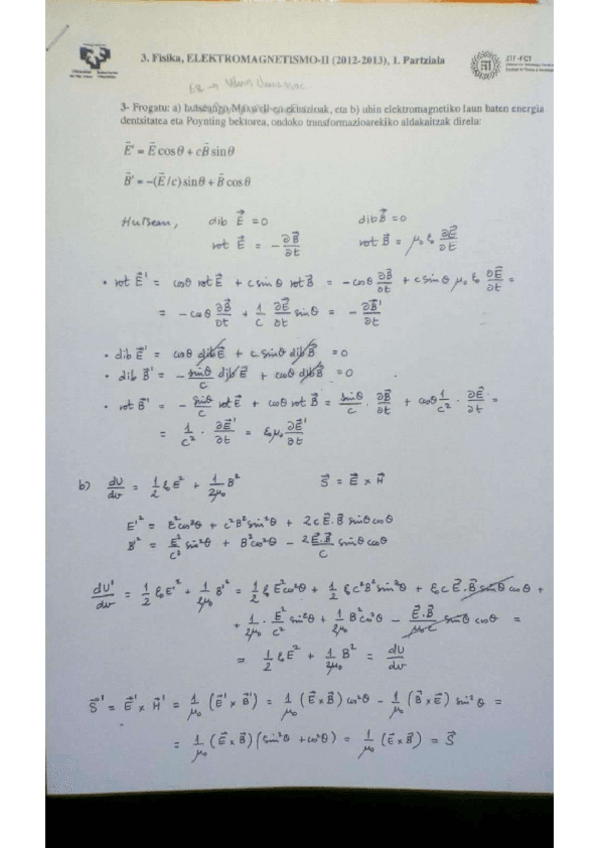 3. Fisika, ELEKTROMAGNETISMO-II (2012-2013), 1. Partziala
ZTF-FCT
3- Frogatu: a) hutsean, Maxwell-en ekuazioak, eta b) uhin elektromagnetiko laun baten energia
dentsitatea eta Poynting bektorea, ondoko transformazioarekiko aldakaitzak direla:
E⃗' = E⃗ cosθ + cB⃗ sinθ
B⃗' = -(E⃗/c) sinθ + B⃗ cosθ
Hutsean, dib E⃗ = 0 dib B⃗ = 0
rot E⃗ = - ∂B⃗/∂t rot B⃗ = μ₀ ε₀ ∂E⃗/∂t
• rot E⃗' = cosθ rot E⃗ + c sinθ rot B⃗ = - cosθ ∂B⃗/∂t + c sinθ μ₀ ε₀ ∂E⃗/∂t =
= - cosθ ∂B⃗/∂t + 1/c ∂E⃗/∂t sinθ = - ∂B⃗'/∂t
• dib E⃗' = cosθ dib E⃗ + c sinθ dib B⃗ = 0
• dib B⃗' = - sinθ/c dib E⃗ + cosθ dib B⃗ = 0
• rot B⃗' = - sinθ/c rot E⃗ + cosθ rot B⃗ = sinθ/c · ∂B⃗/∂t + cosθ 1/c² · ∂E⃗/∂t =
= 1/c² · ∂E⃗'/∂t = ε₀ μ₀ ∂E⃗'/∂t
b) dU/dv = 1/2 ε₀ E² + 1/2μ₀ B² S⃗ = E⃗ × H⃗
E'² = E² cos²θ + c² B² sin²θ + 2c E⃗·B⃗ sinθ cosθ
B'² = E²/c² sin²θ + B² cos²θ - 2E⃗·B⃗/c sinθ cosθ
dU'/dv = 1/2 ε₀ E'² + 1/2μ₀ B'² = 1/2 ε₀ E² cos²θ + 1/2 ε₀ c² B² sin²θ + ε₀ c E⃗·B⃗ sinθ cosθ +
+ 1/2μ₀ · E²/c² sin²θ + 1/2μ₀ B² cos²θ - E⃗·B⃗/μ₀c sinθ cosθ =
= 1/2 ε₀ E² + 1/2μ₀ B² = dU/dv
S⃗' = E⃗' × H⃗' = 1/μ₀ (E⃗' × B⃗') = 1/μ₀ (E⃗ × B⃗) cos²θ - 1/μ₀ (B⃗ × E⃗) sin²θ =
= 1/μ₀ (E⃗ × B⃗) (sin²θ + cos²θ) = 1/μ₀ (E⃗ × B⃗) = S⃗